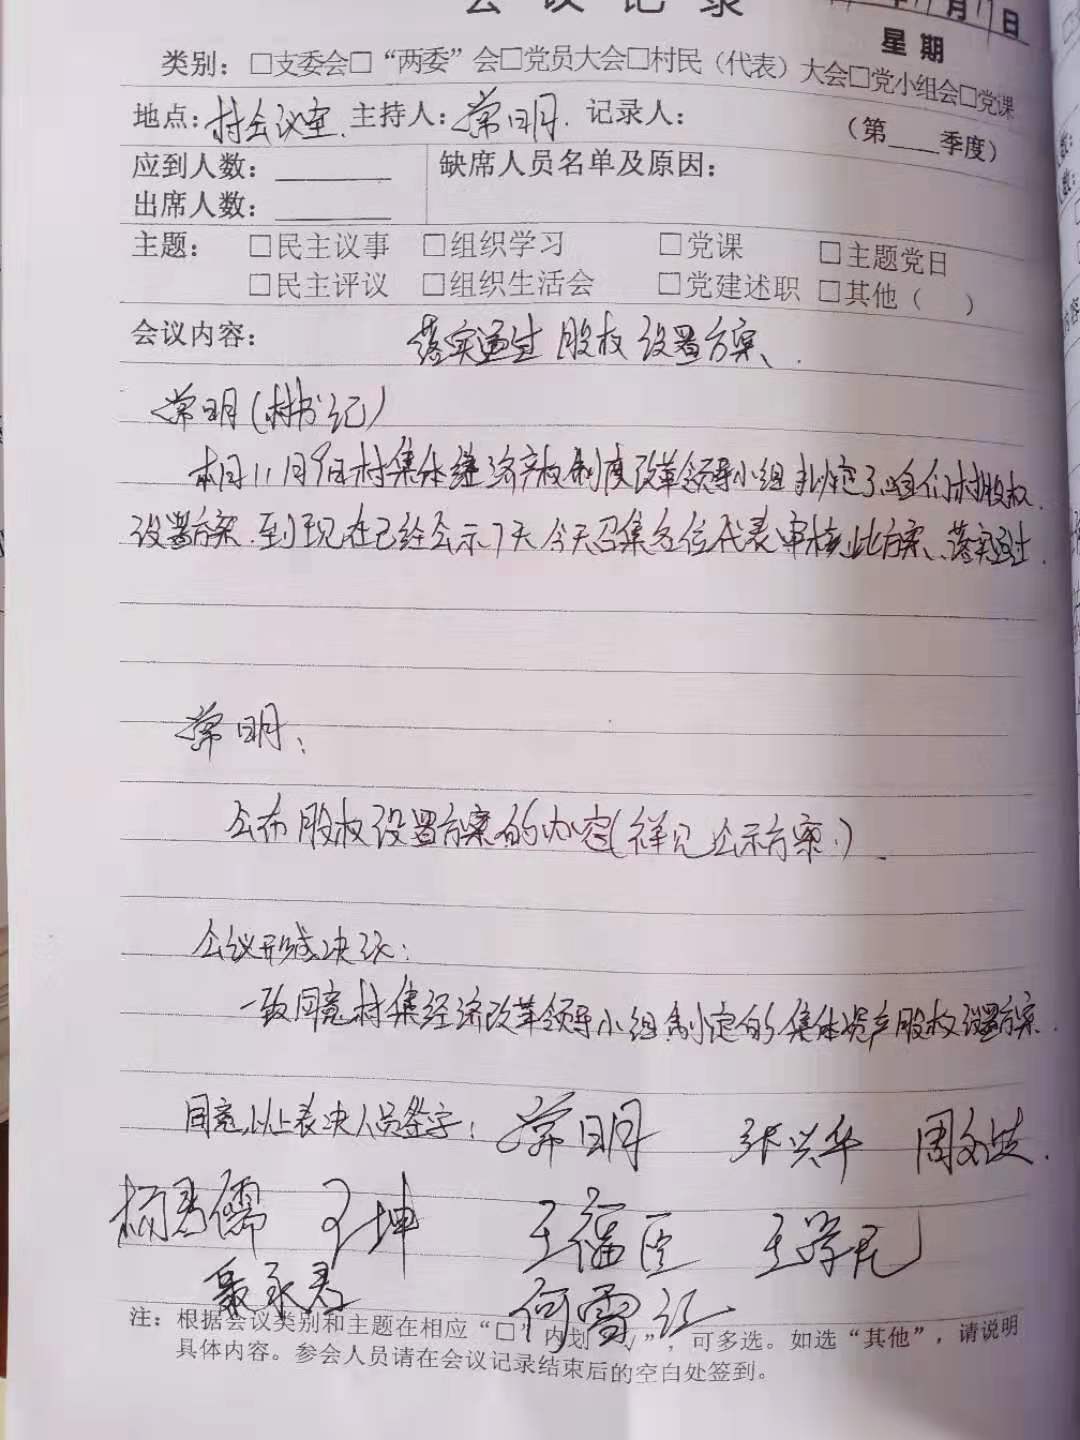 会议记录
年11月17日
星期
类别：□支委会□“两委”会□党员大会□村民（代表）大会□党小组会□党课
地点：村会议室 主持人：常明 记录人： （第____季度）
应到人数：______ 缺席人员名单及原因：
出席人数：______
主题： □民主议事 □组织学习 □党课 □主题党日
□民主评议 □组织生活会 □党建述职 □其他（ ）
会议内容： 落实通过股权设置方案、
常明（村书记）
本月11月9日村集体经济产权制度改革领导小组拟定了咱们村股权
设置方案.到现在已经公示7天今天召集各位代表审核此方案、落实通过.
常明：
公布股权设置方案的内容（祥见公示方案.）
会议形成决议：
一致同意村集经济改革领导小组制定的集体资产股权设置方案.
同意以上表决人员签字：常明 张兴华 周文
王坤 王福臣 王学
聂永君 何雷
注：根据会议类别和主题在相应“□”内划“√”，可多选。如选“其他”，请说明
具体内容。参会人员请在会议记录结束后的空白处签到。